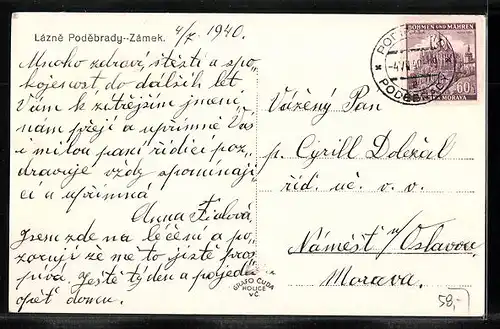 Lázně Poděbrady--Zámek.
4/7. 1940.
Mnoho zdraví, štěstí a spo-
kojenost do dalších let
Vám k zítřejším jmeni-
nám přeji a upřímně Vás
i milou paní řídící poz-
dravuje vždy spomínají-
cí a upřímná
Anna Fialová.
Jsem zde na léčení a po-
zoruji že me to jistě pros-
pívá. Ještě týden a pojedu
opět domu.
GRAFO ČUDA
HOLICE
V.Č.
BÖHMEN UND MÄHREN
60
MORAVA
PODĚBRADY
Vážený Pan
p. Cyrill Doležel
říd. uč. v. v.
Náměšť n/Oslavou
Morava.
58,-